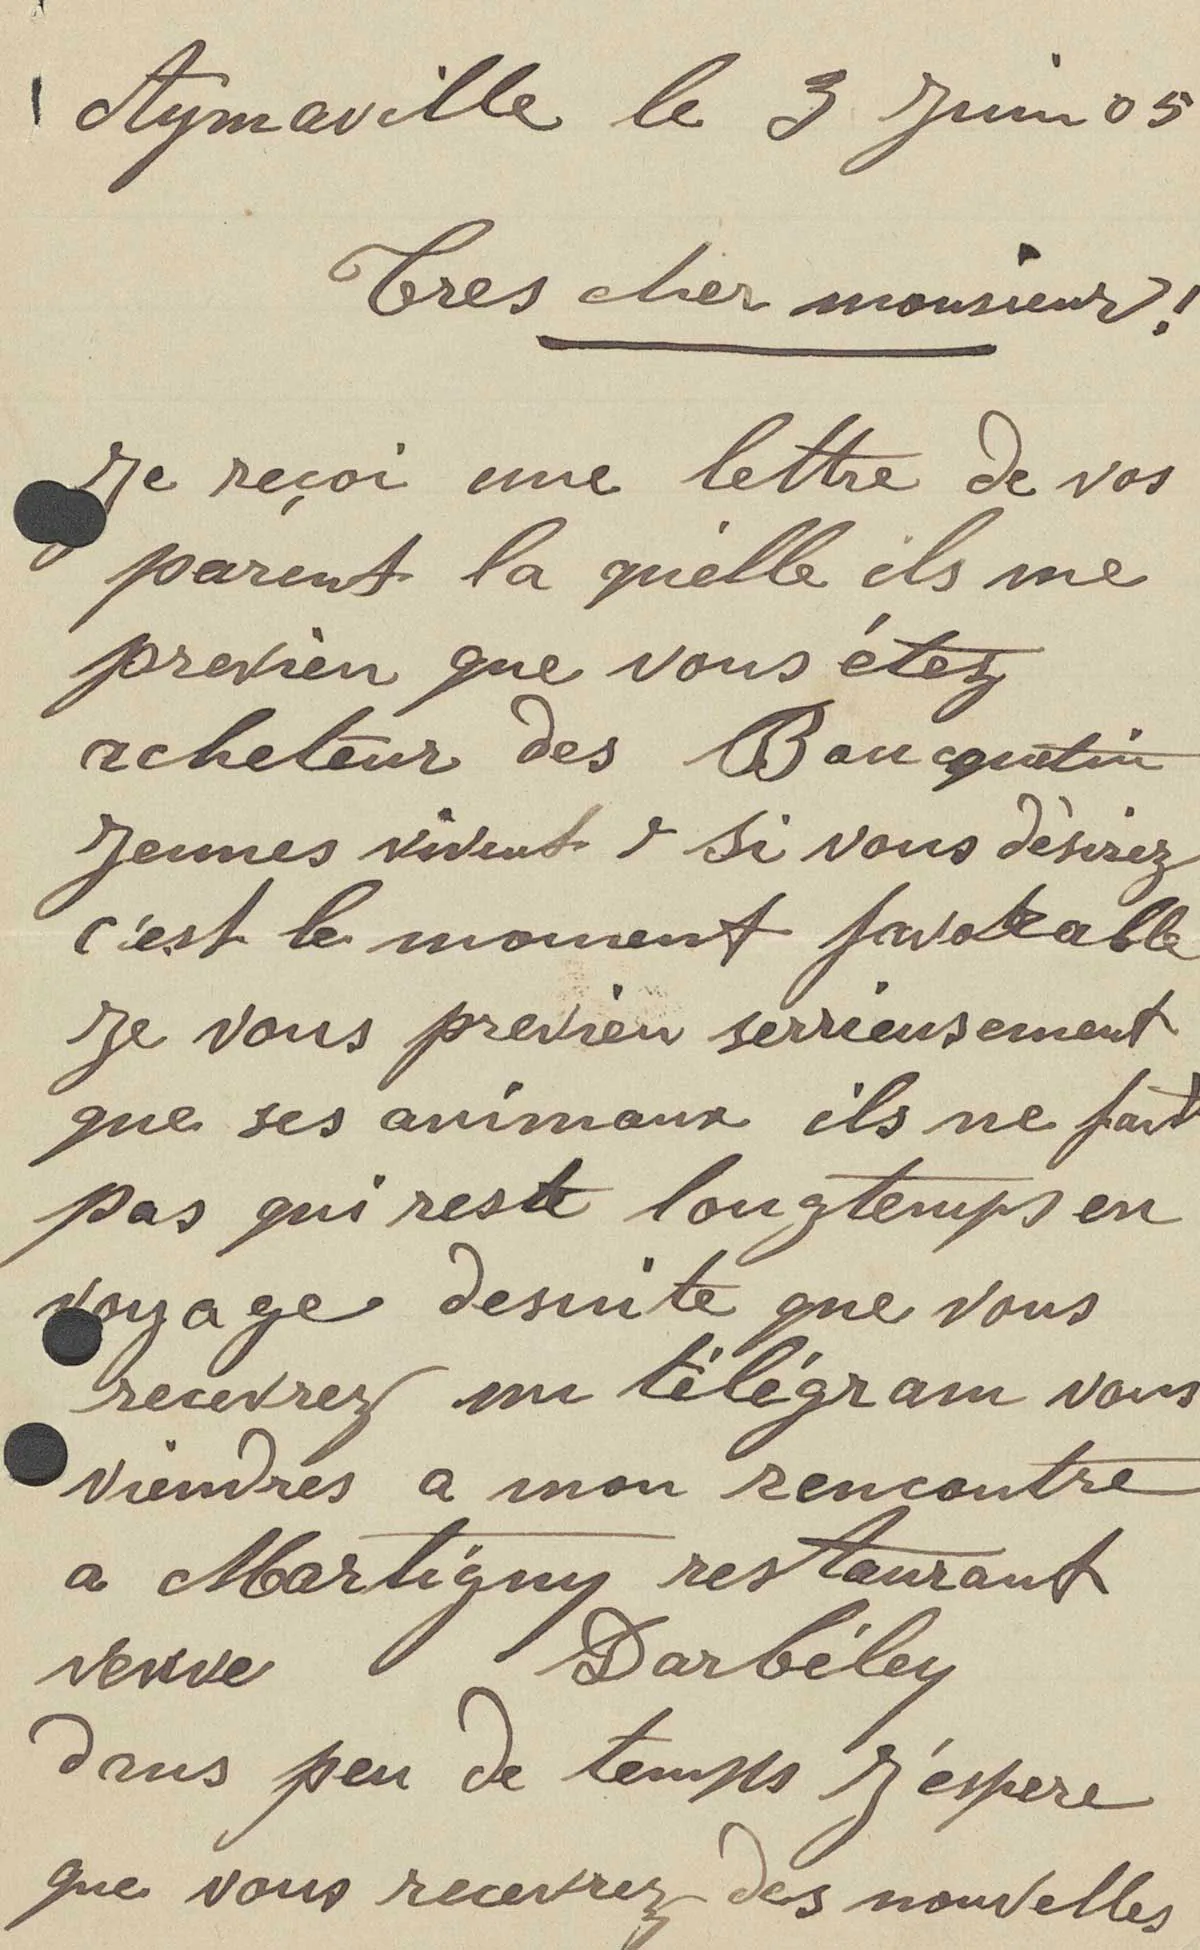 Aymaville le 3 Juin 05
Tres cher monsieur!
Je reçoi une lettre de vos
parent la quelle ils me
previen que vous étez
acheteur des Boucquetin
Jeunes vivent & Si vous désirez
c'est le moment favorable
Je vous previen serrieusement
que ses animaux ils ne faut
pas qui reste longtemps en
voyage desuite que vous
recevrez un télégram vous
viendres a mon rencontre
a Martigny restaurant
veuve Darbéley
dans peu de temps J'éspere
que vous recevrez des nouvelles